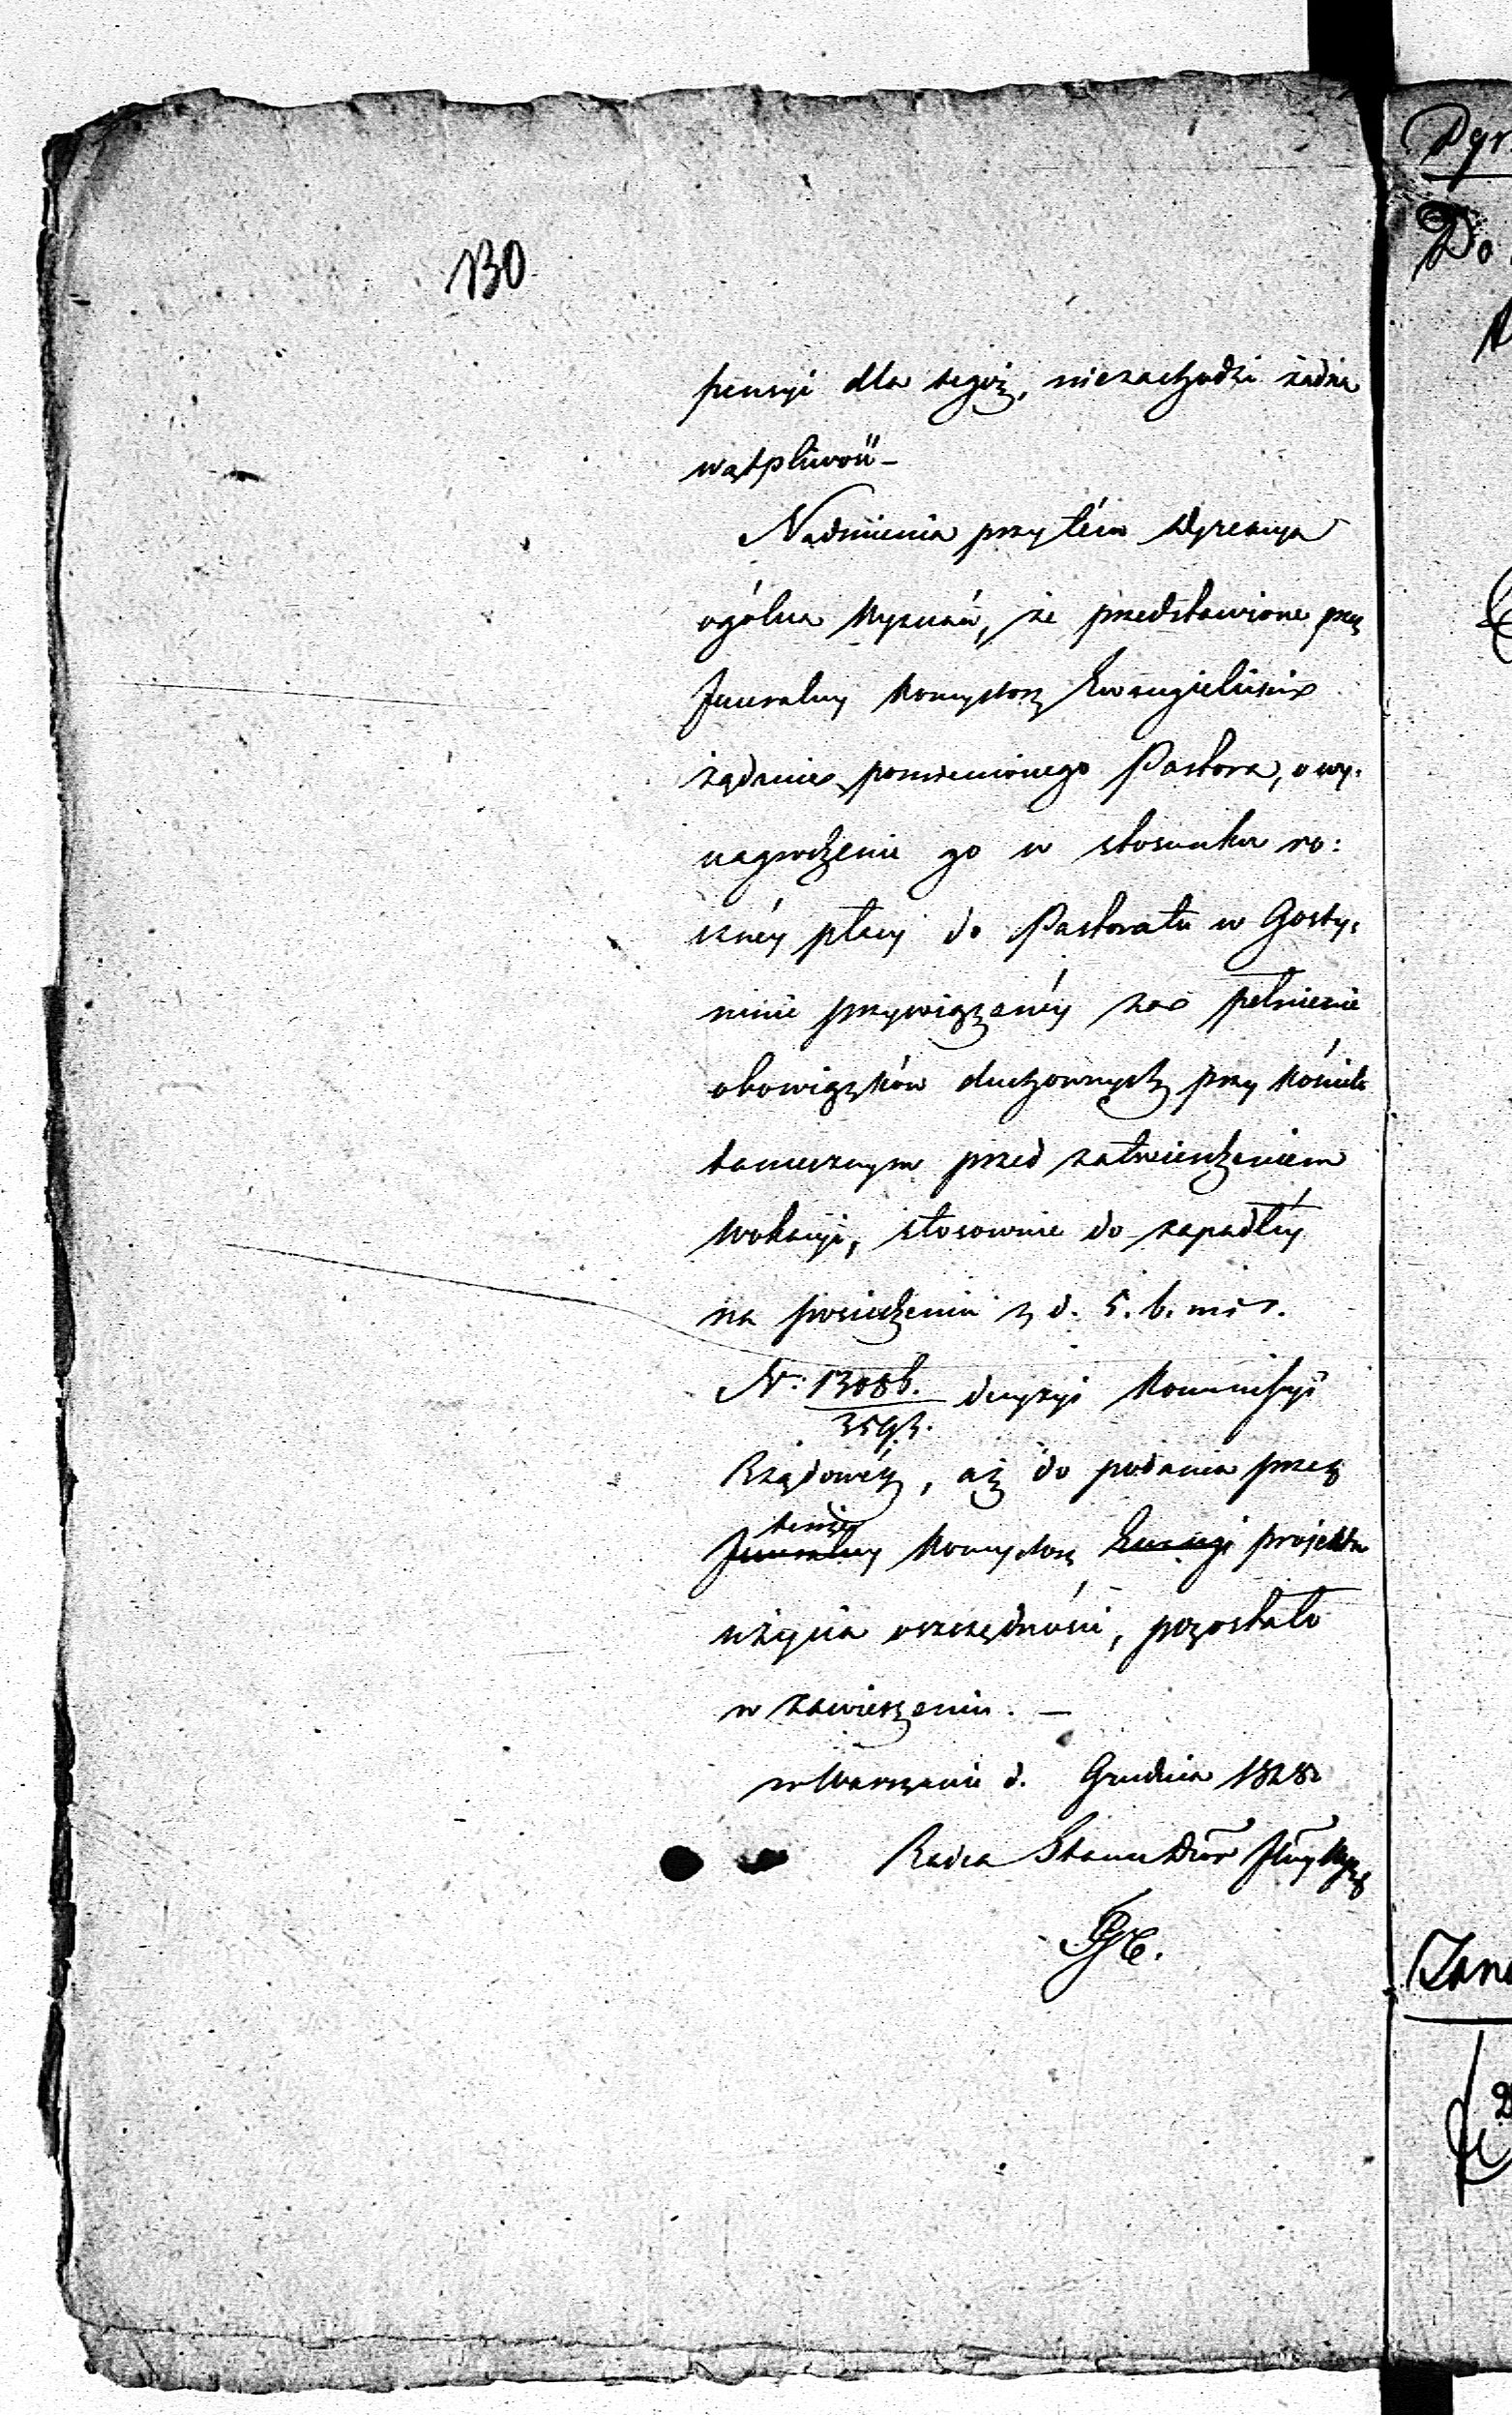 130
pensyi dla tegoż, niezachodzi żadna
wątpliwość –
Nadmienia przytém Dyrekcya
ogólna Wyznań, że przedstawione przez
Jeneralny Konsystorz Ewangielicki
żądanie pomienionego Pastora, o wy-
nagrodzenie go w stosunku ro:
cznéy płacy do Pastoratu w Gosty-
ninie przywiązanéy za pełnienie
obowiązków duchownych przy kościele
tamecznym przed zatwierdzeniem
wokacyi, stosownie do zapadłéy
na posiedzeniu z d. 5. b. m. i r.
N: 13086. decyzyi Kommissyi
3593.
Rządowéy, aż do podania przez
tenże
Jeneralny Konsystorz Ewangi projektu
użycia oszczędności, pozostało
w zawieszeniu. –
w Warszawie d. Grudnia 1828
Radca Stanu Dror Jlny Wyz
Dyr
Do